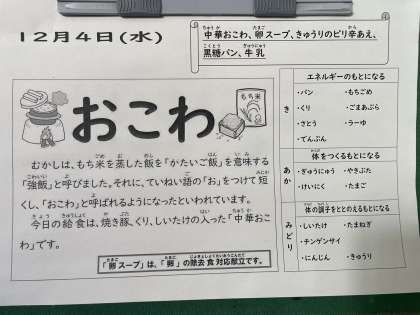 12月4日(水)
中華おこわ、卵スープ、きゅうりのピリ辛あえ、
黒糖パン、牛乳
もち米
おこわ
むかしは、もち米を蒸した飯を「かたいご飯」を意味する
「強飯」と呼びました。それに、ていねい語の「お」をつけて短
くし、「おこわ」と呼ばれるようになったといわれています。
今日の給食は、焼き豚、くり、しいたけの入った「中華おこ
わ」です。
「卵スープ」は、「卵」の除去食対応献立です。
エネルギーのもとになる
き
・パン ・もちごめ
・くり ・ごまあぶら
・さとう ・ラーゆ
・でんぷん
体をつくるもとになる
あか
・ぎゅうにゅう ・やきぶた
・けいにく ・たまご
体の調子をととのえるもとになる
みどり
・しいたけ ・たまねぎ
・チンゲンサイ
・にんじん ・きゅうり